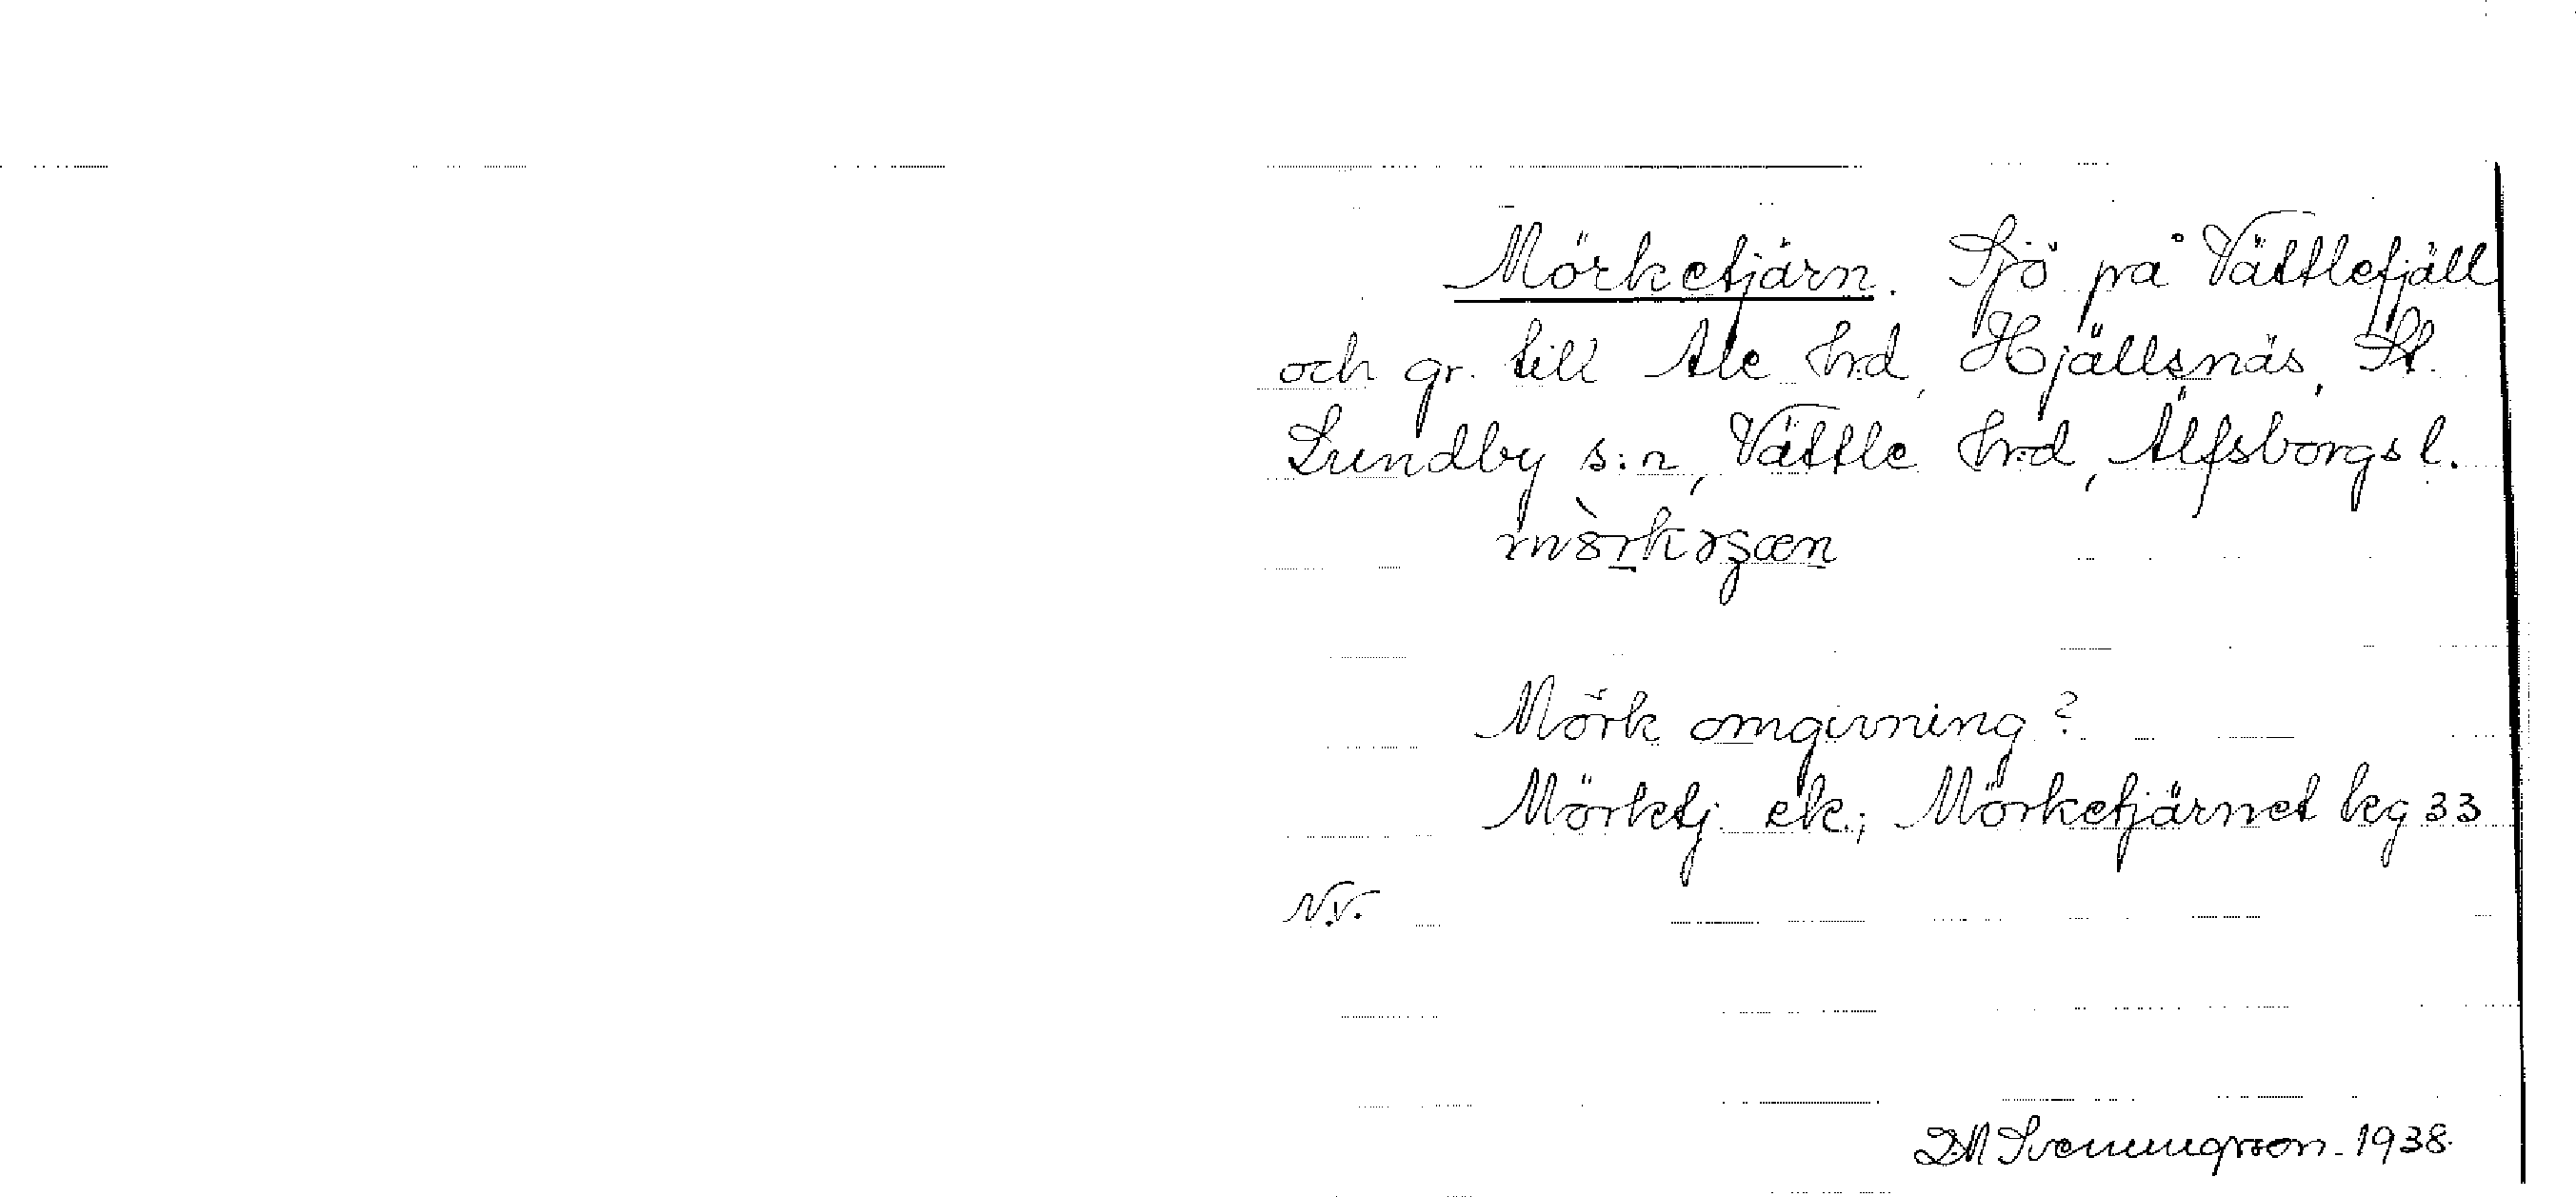 Mörketjärn. Sjö på Vättlefjäll
och gr. till Ale hrd, Hjällsnäs, St.
Lundby s:n, Vättle hrd, Älfsborgs l.
Mörk omgivning?
Mörktj. ek.; Mörketjärnet keg 33
N.V.
D.A Svenungsson. 1938.